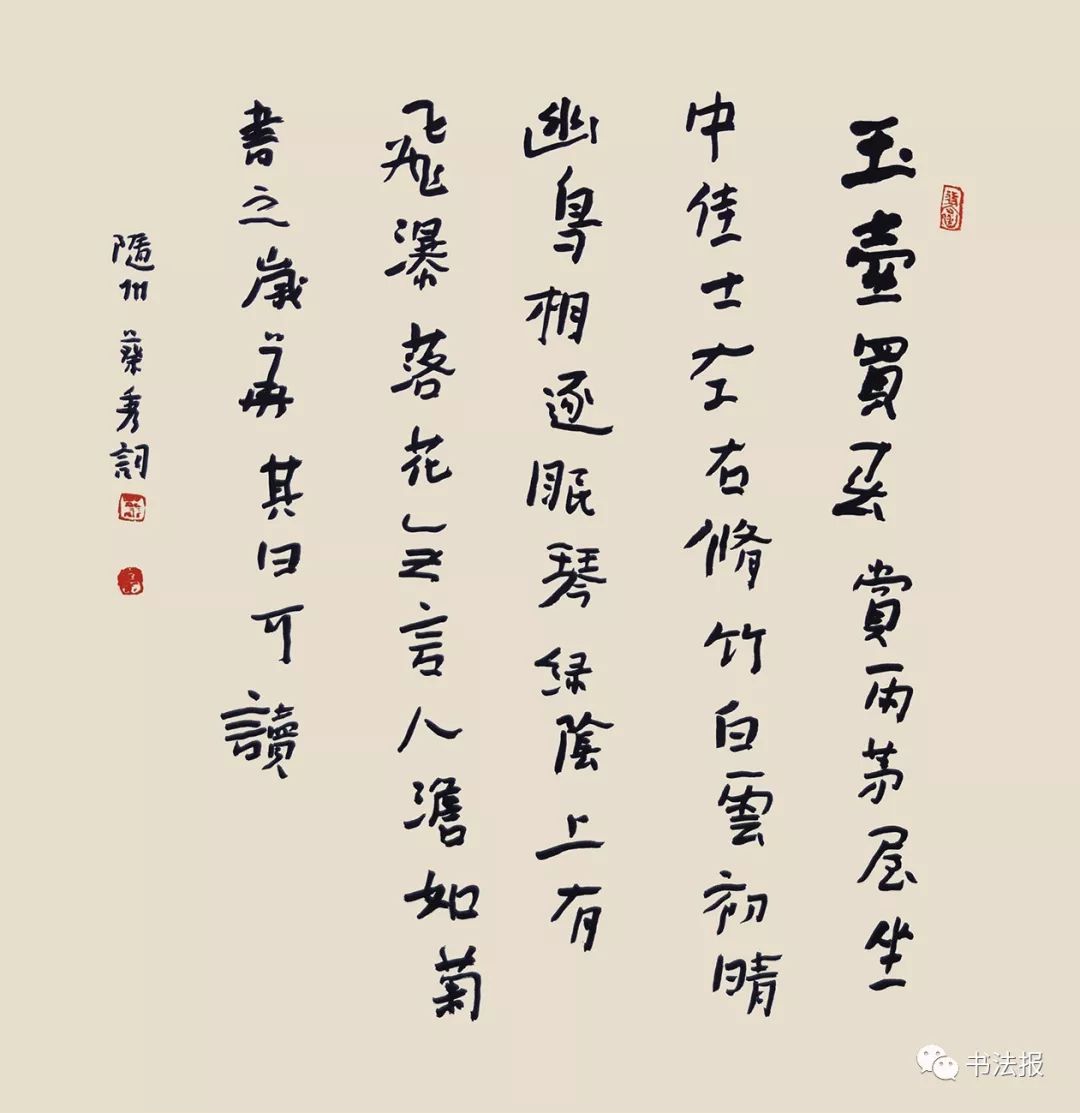 玉壺買春賞雨茅屋坐
中佳士左右脩竹白雲初晴
幽鳥相逐眠琴綠陰上有
飛瀑落花無言人澹如菊
書之歲華其曰可讀
隨州 蔡秀詞
书法报